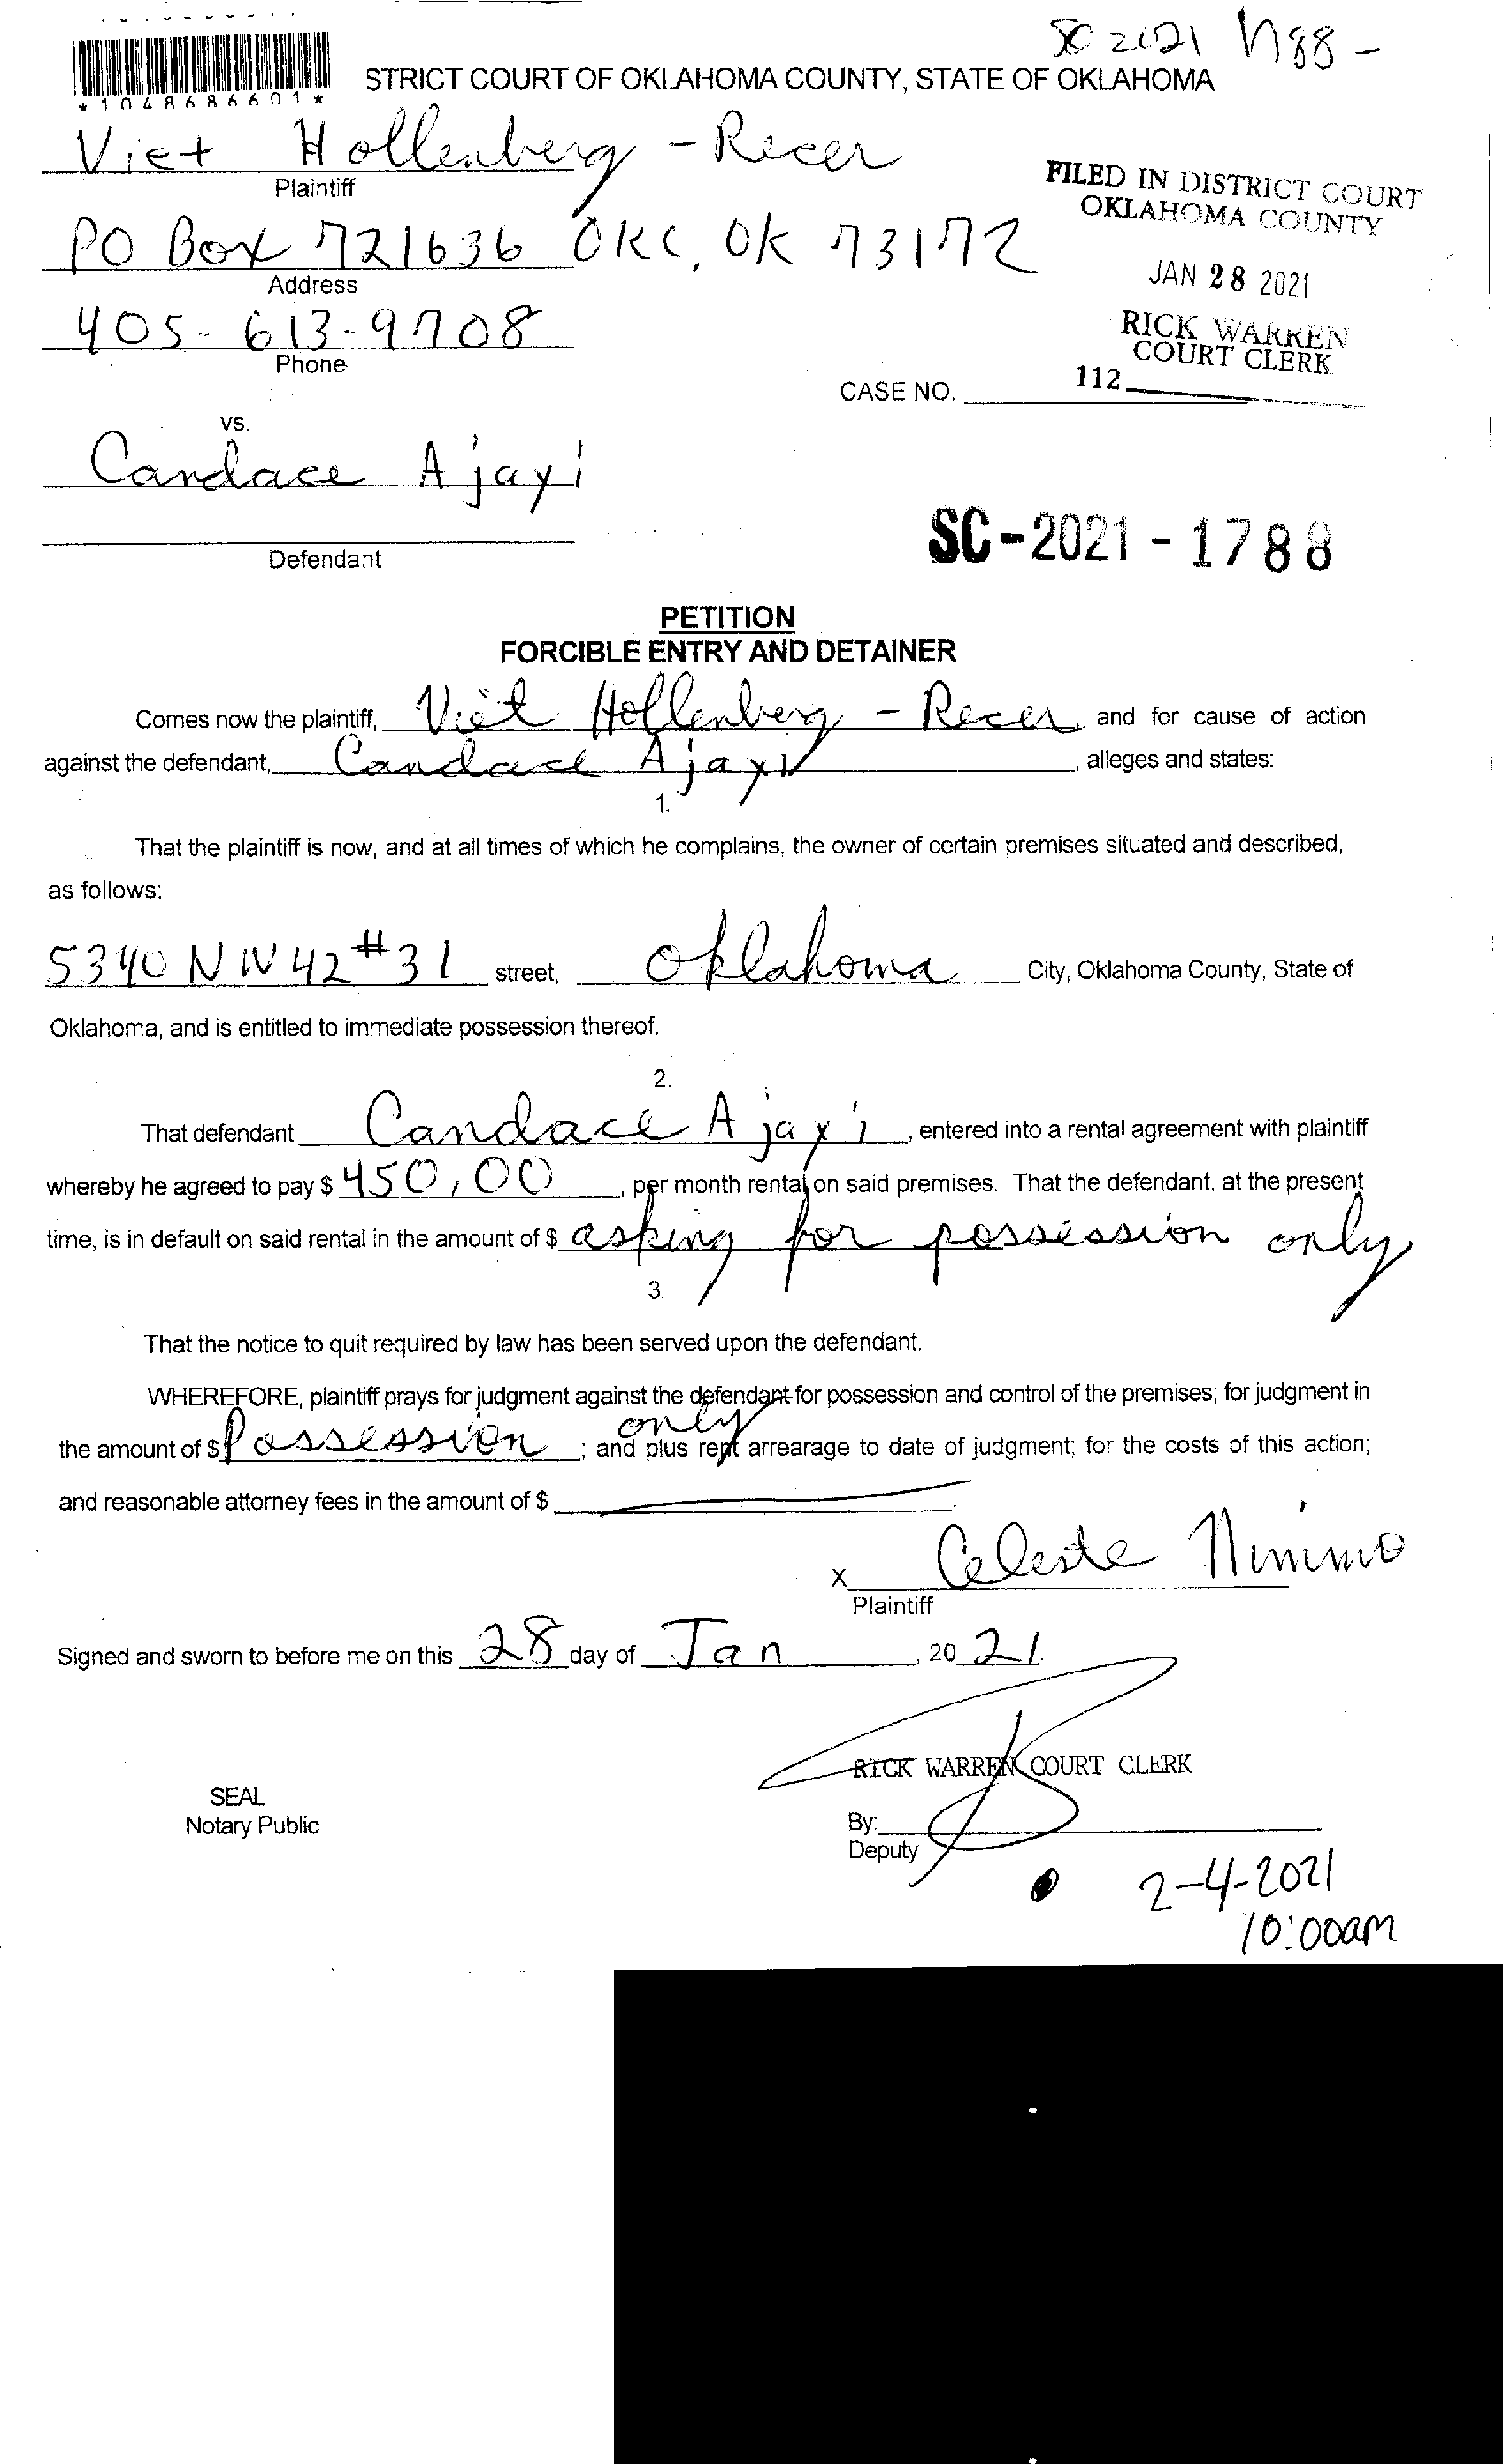 SC 2021 1788 -
*1048686601*
STRICT COURT OF OKLAHOMA COUNTY, STATE OF OKLAHOMA
Viet Hollenberg - Recer
Plaintiff
FILED IN DISTRICT COURT
OKLAHOMA COUNTY
PO Box 721636 OKC, OK 73172
Address
JAN 28 2021
405-613-9708
Phone
RICK WARREN
COURT CLERK
112
CASE NO.
vs.
Candace Ajayi
Defendant
SC-2021-1788
PETITION
FORCIBLE ENTRY AND DETAINER
Comes now the plaintiff, Viet Hollenberg - Recer and for cause of action
against the defendant, Candace Ajayi, alleges and states:
1.
That the plaintiff is now, and at all times of which he complains, the owner of certain premises situated and described,
as follows:
5340 NW 42 #31 street, Oklahoma City, Oklahoma County, State of
Oklahoma, and is entitled to immediate possession thereof.
2.
That defendant Candace Ajayi, entered into a rental agreement with plaintiff
whereby he agreed to pay $ 450,00, per month rental on said premises. That the defendant, at the present
time, is in default on said rental in the amount of $ asking for possession only
3.
That the notice to quit required by law has been served upon the defendant.
WHEREFORE, plaintiff prays for judgment against the defendant for possession and control of the premises; for judgment in
the amount of $ Possession only; and plus rent arrearage to date of judgment; for the costs of this action;
and reasonable attorney fees in the amount of $
X Celeste
Plaintiff
Signed and sworn to before me on this 28 day of Jan, 2021.
RICK WARREN COURT CLERK
SEAL
Notary Public
By:
Deputy
2-4-2021
10:00am